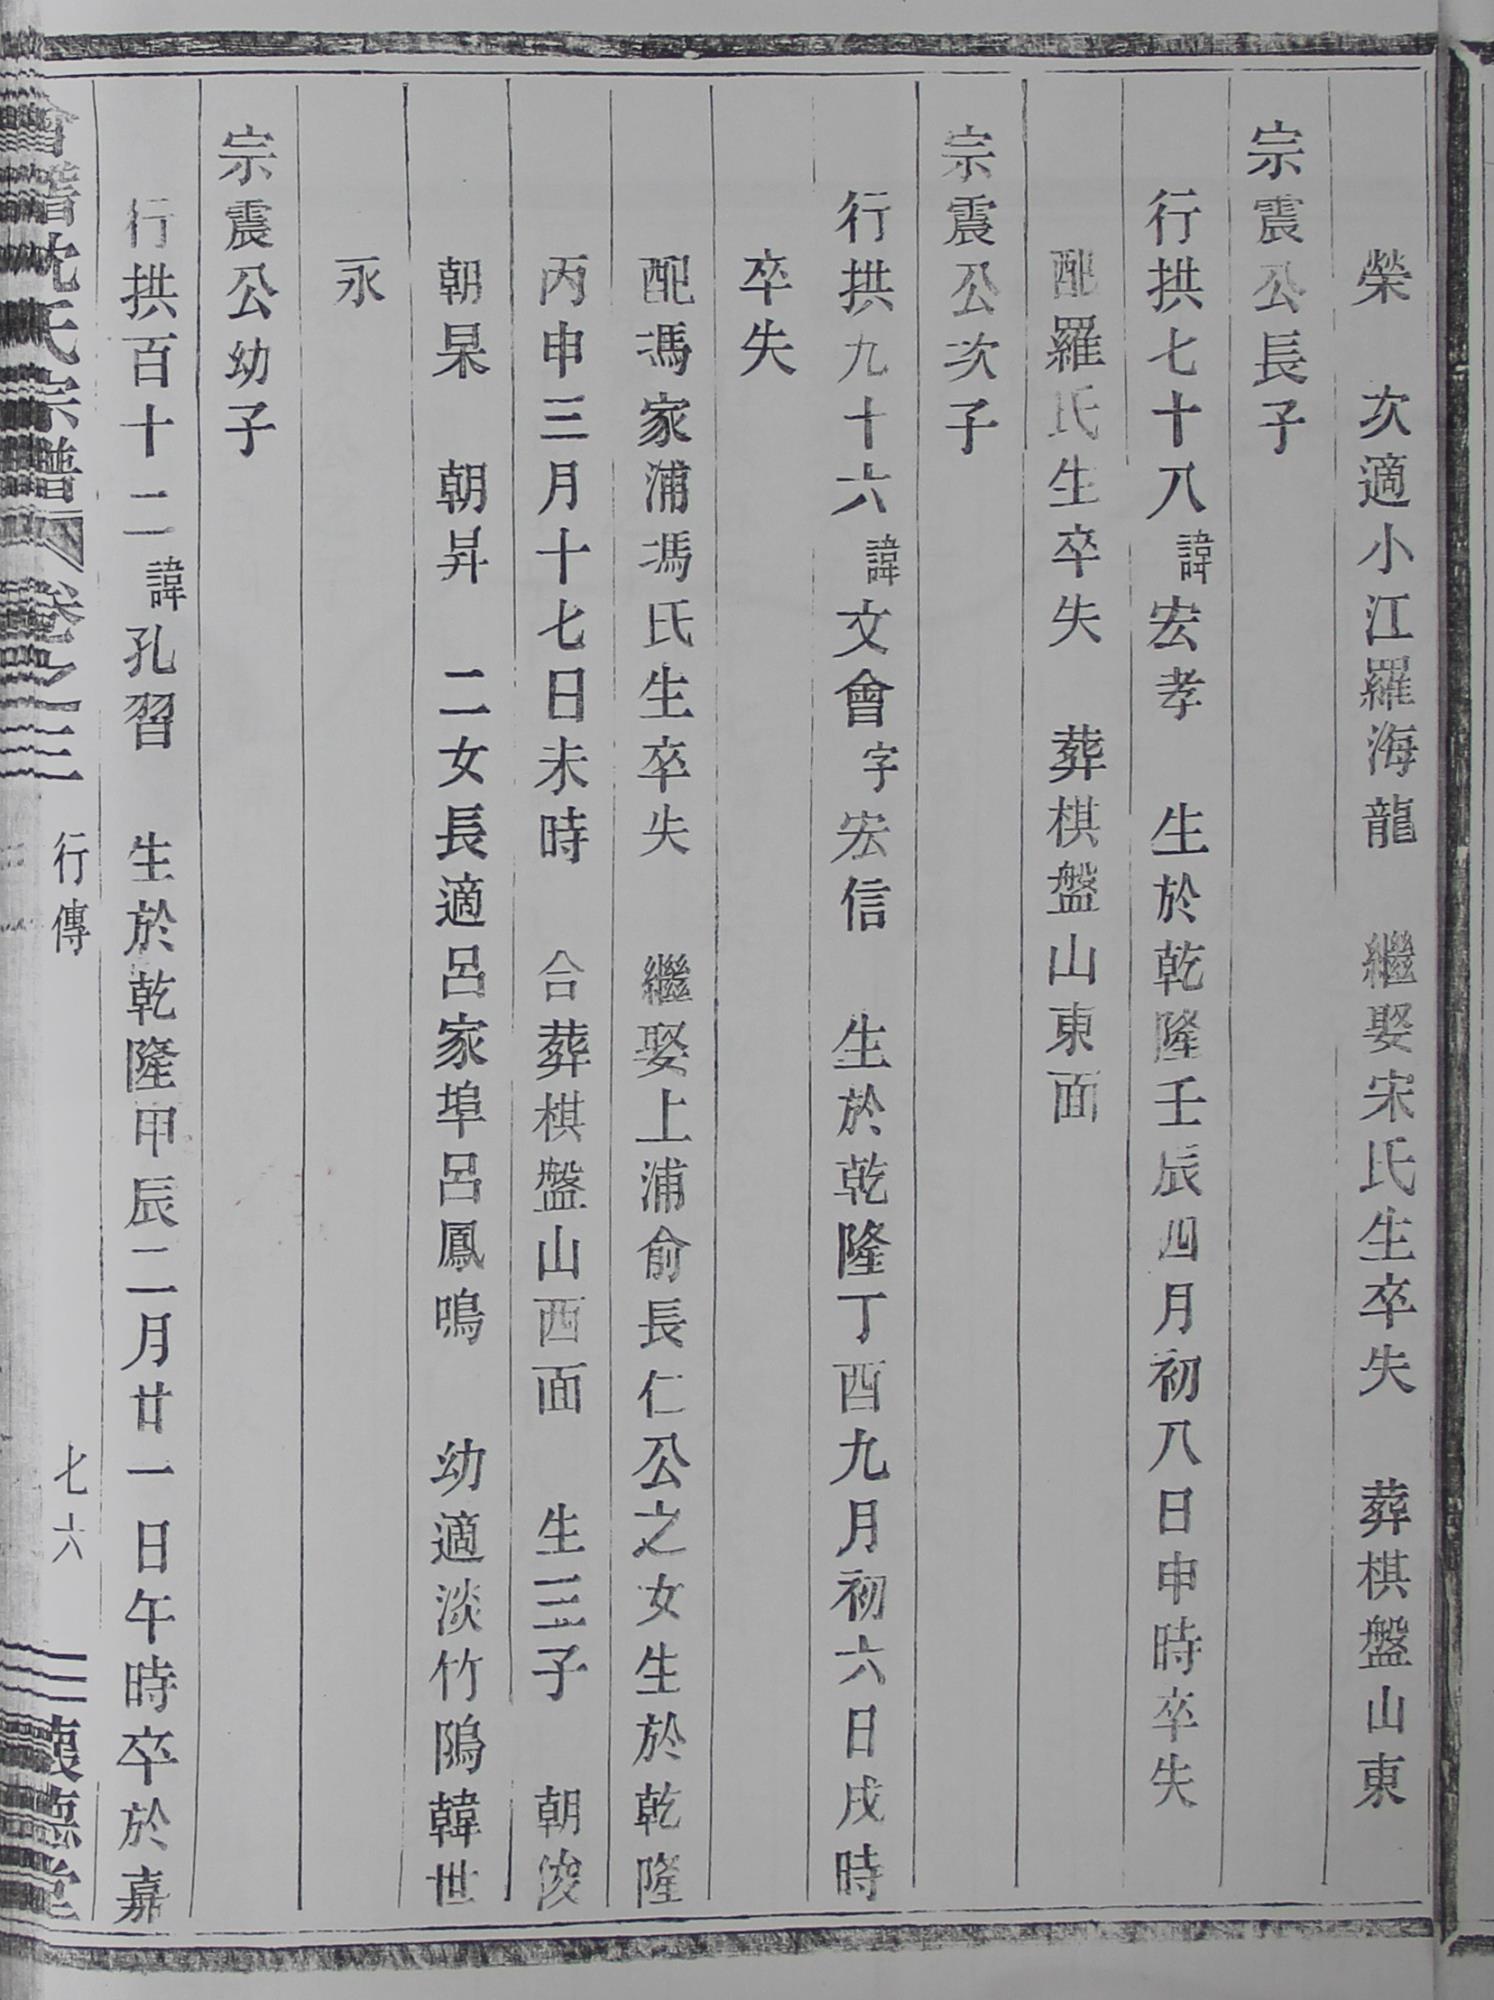 榮　次適小江羅海龍　繼娶宋氏生卒失　葬棋盤山東
宗震公長子
行拱七十八諱宏孝　生於乾隆壬辰四月初八日申時卒失
配羅氏生卒失　葬棋盤山東面
宗震公次子
行拱九十六諱文會字宏信　生於乾隆丁酉九月初六日戌時
卒失
配馮家浦馮氏生卒失　繼娶上浦俞長仁公之女生於乾隆
丙申三月十七日未時　合葬棋盤山西面　生三子　朝俊
朝杲　朝昇　二女長適呂家埠呂鳳鳴　幼適淡竹隝韓世
永
宗震公幼子
行拱百十二諱孔習　生於乾隆甲辰二月廿一日午時卒於嘉
會稽沈氏宗譜　卷之三　行傳　七六　懷德堂